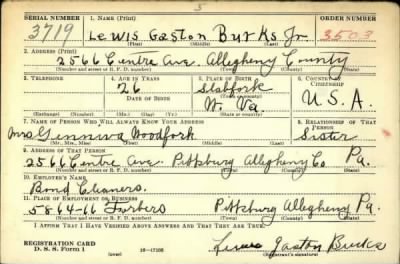 SERIAL NUMBER 1. NAME (Print) ORDER NUMBER
3719 Lewis Gaston Burks Jr. 3503
(First) (Middle) (Last)
2. ADDRESS (Print)
2566 Centre Ave. Allegheny County
(Number and street or R. F. D. number) (Town) (County) (State)
3. TELEPHONE 4. AGE IN YEARS 5. PLACE OF BIRTH 6. COUNTRY OF CITIZENSHIP
26 Slabfork
DATE OF BIRTH (Town or county)
W. Va. U.S.A.
(Exchange) (Number) (Mo.) (Day) (Yr.) (State or country)
7. NAME OF PERSON WHO WILL ALWAYS KNOW YOUR ADDRESS 8. RELATIONSHIP OF THAT PERSON
Mrs Genniva Woodfork Sister
(Mr., Mrs., Miss) (First) (Middle) (Last)
9. ADDRESS OF THAT PERSON
2566 Centre Ave Pittsburg Allegheny Co Pa.
(Number and street or R. F. D. number) (Town) (County) (State)
10. EMPLOYER'S NAME
Bond Cleaners.
11. PLACE OF EMPLOYMENT OR BUSINESS
5864-66 Forbers Pittsburg Allegheny Pa.
(Number and street or R. F. D. number) (Town) (County) (State)
I AFFIRM THAT I HAVE VERIFIED ABOVE ANSWERS AND THAT THEY ARE TRUE.
REGISTRATION CARD
D. S. S. Form 1 (over) 16-17105 Lewis Gaston Burks
(Registrant's signature)